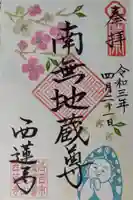 奉拝
令和三年
四月二十一日
南無地蔵尊
西蓮寺